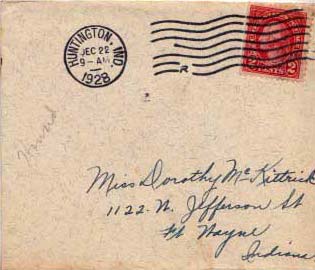 HUNTINGTON, IND.
DEC 22
9-AM
1928
R
2 CENTS 2
Miss Dorothy McKittrick
1122 N. Jefferson St
Ft Wayne
Indiana